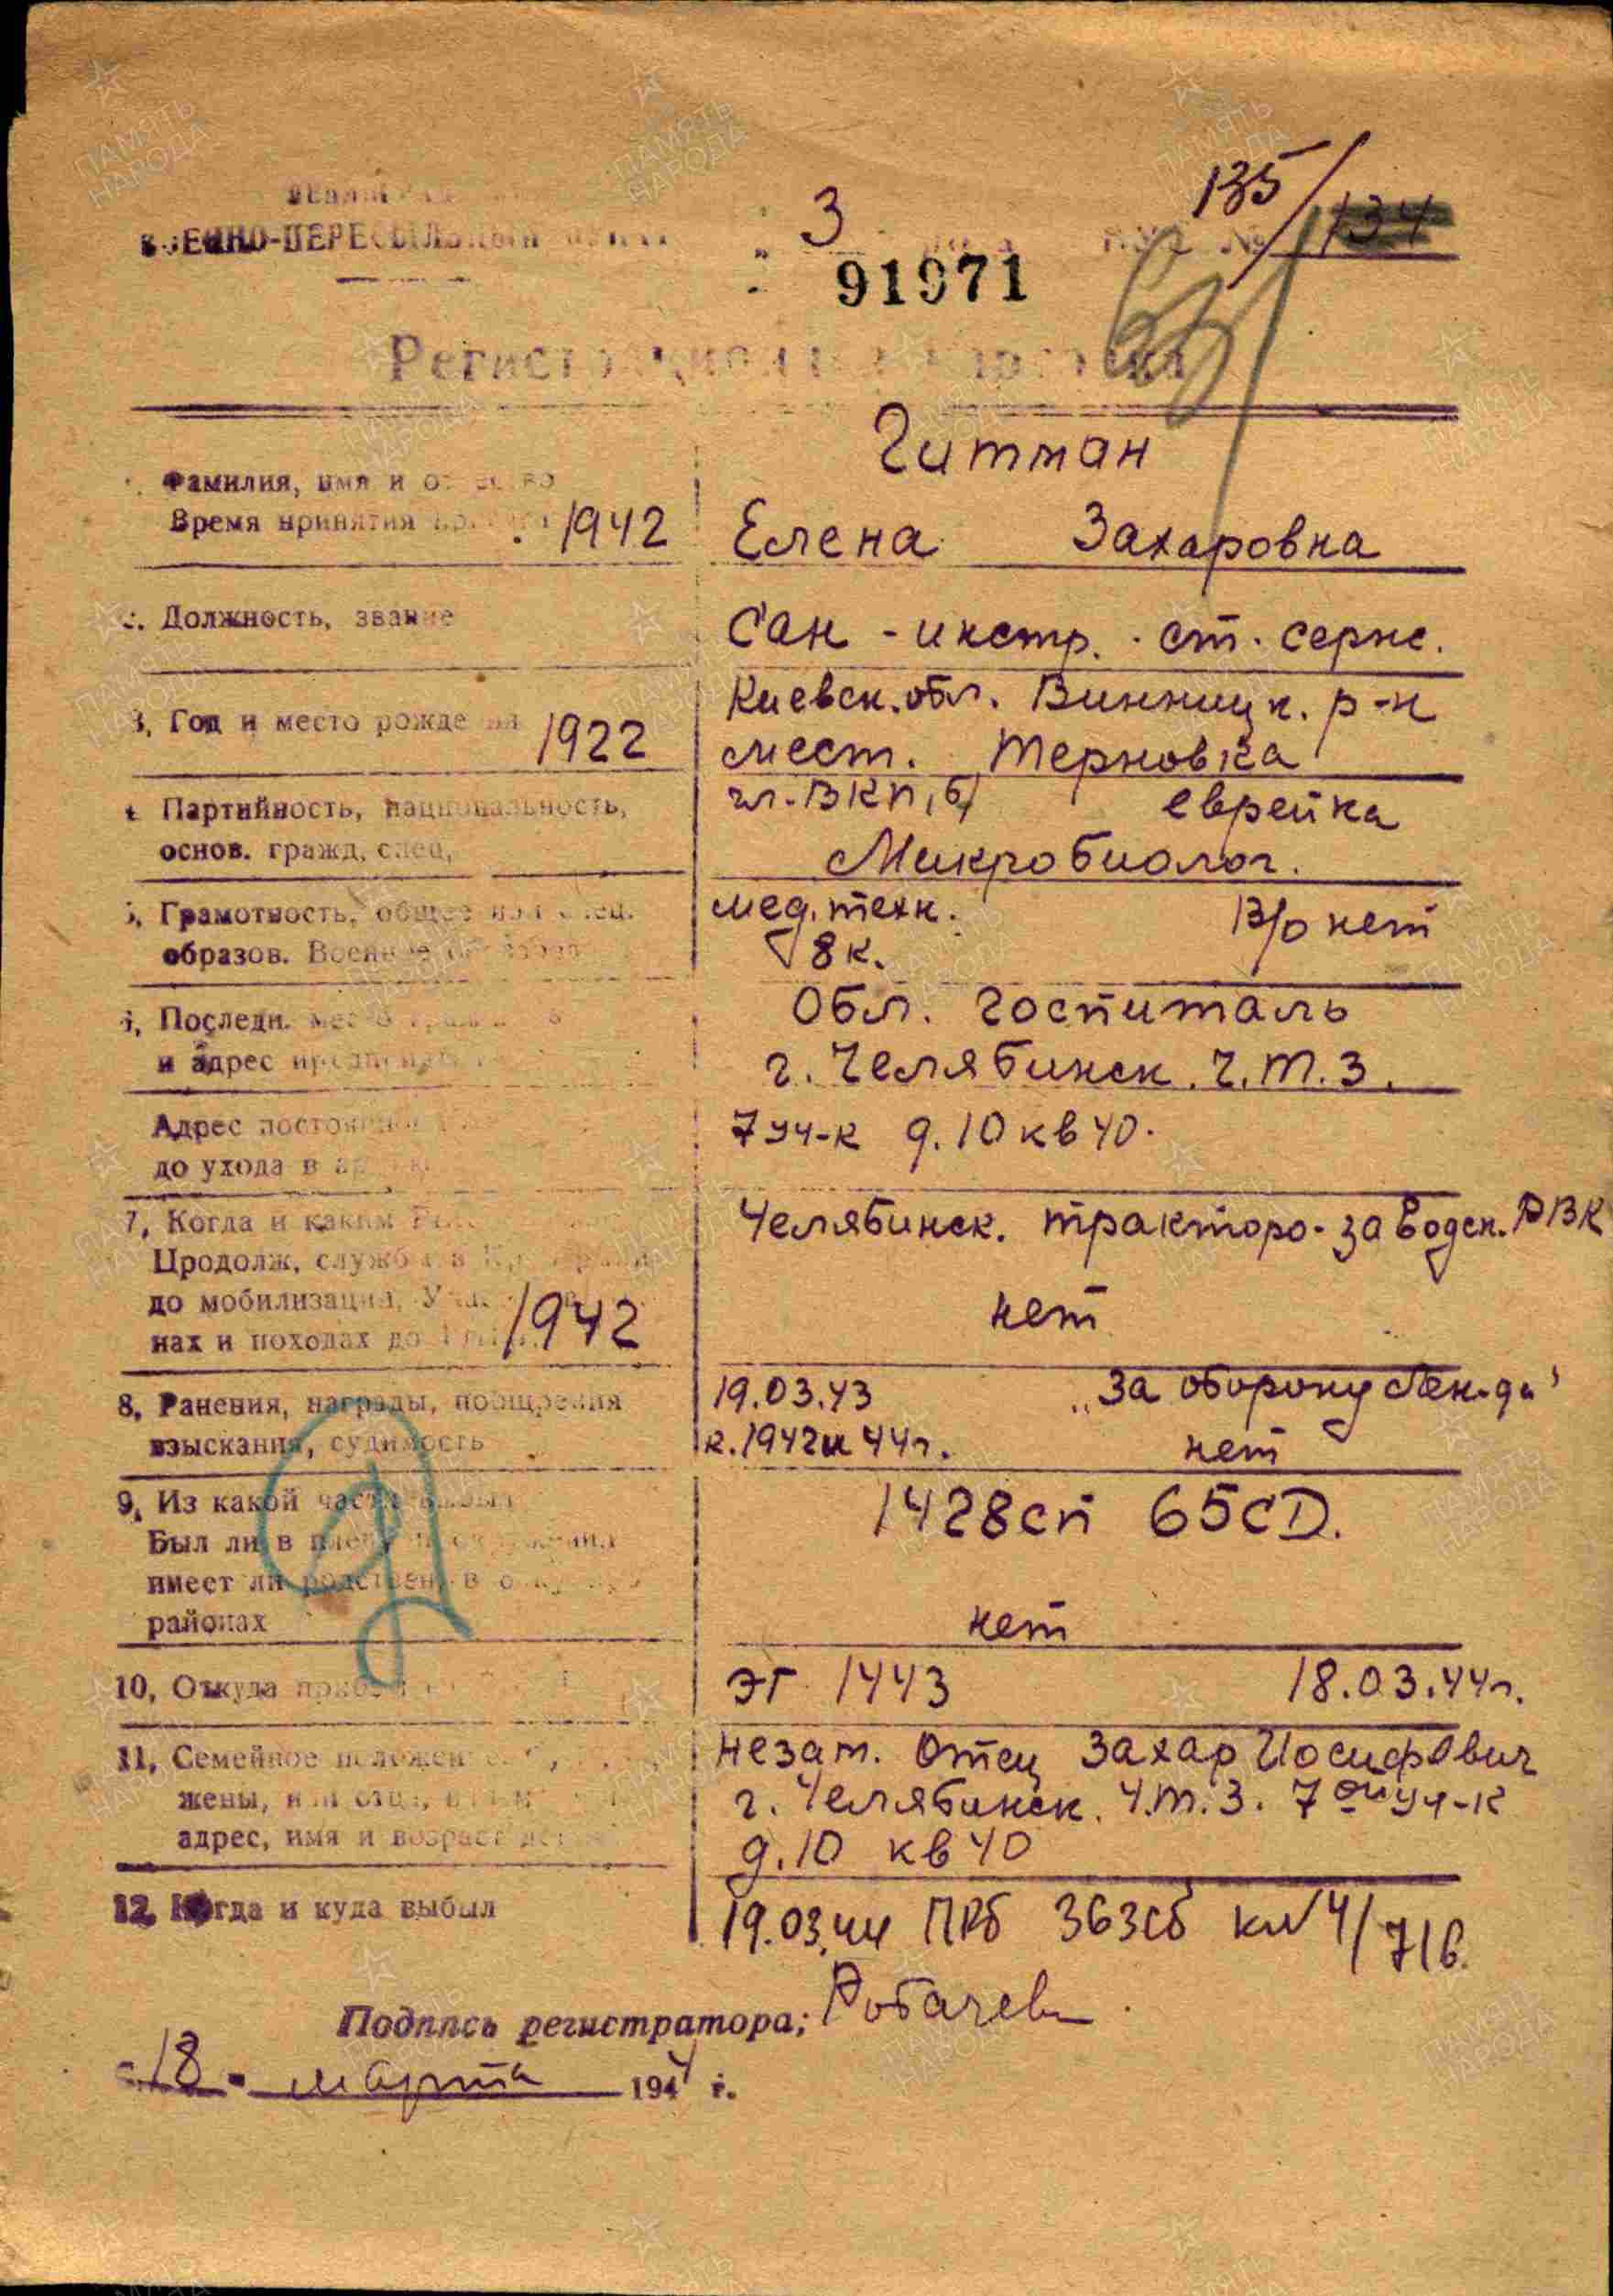 ВОЕННО-ПЕРЕСЫЛЬНЫЙ
3
135/134
№
91971
Регистрационная карточка
1. Фамилия, имя и отчество
Время принятия присяги 1942
Гитман
Елена Захаровна
2. Должность, звание
Сан-инстр. ст. серж.
3, Год и место рождения 1922
Киевск. обл. Винницк. р-н
мест. Терновка
4 Партийность, национальность,
основ. гражд, спец,
чл. ВКП(б) еврейка
Микробиолог.
5, Грамотность, общее или спец.
образов. Военное
мед. техн. В/о нет
8 к.
6, Последн. место
и адрес
Обл. госпиталь
г. Челябинск. Ч.Т.З.
Адрес постоян
до ухода в
7 уч-к д. 10 кв 40.
7, Когда и каким
Продолж, службы в Кр.
до мобилизации, Участ в
нах и походах до 1942
Челябинск. тракторо-заводск. РВК
нет
8, Ранения, награды, поощрения
взыскания, судимость
19.03.43 „За оборону Лен-да"
к. 1942 и 44г. нет
9, Из какой части выбыл
Был ли в плену
имеет ли родствен, в
районах
1428 сп 65 СД.
нет
10, Откуда прибыл
ЭГ 1443 18.03.44г.
11, Семейное положен
жены, или отца,
адрес, имя и возраст детей
незам. Отец Захар Иосифович
г. Челябинск. Ч.Т.З. 7ой уч-к
д. 10 кв 40
12, Когда и куда выбыл
19.03.44 ПРб 363сб к№4/716.
Подпись регистратора;
"18" марта 1944 г.